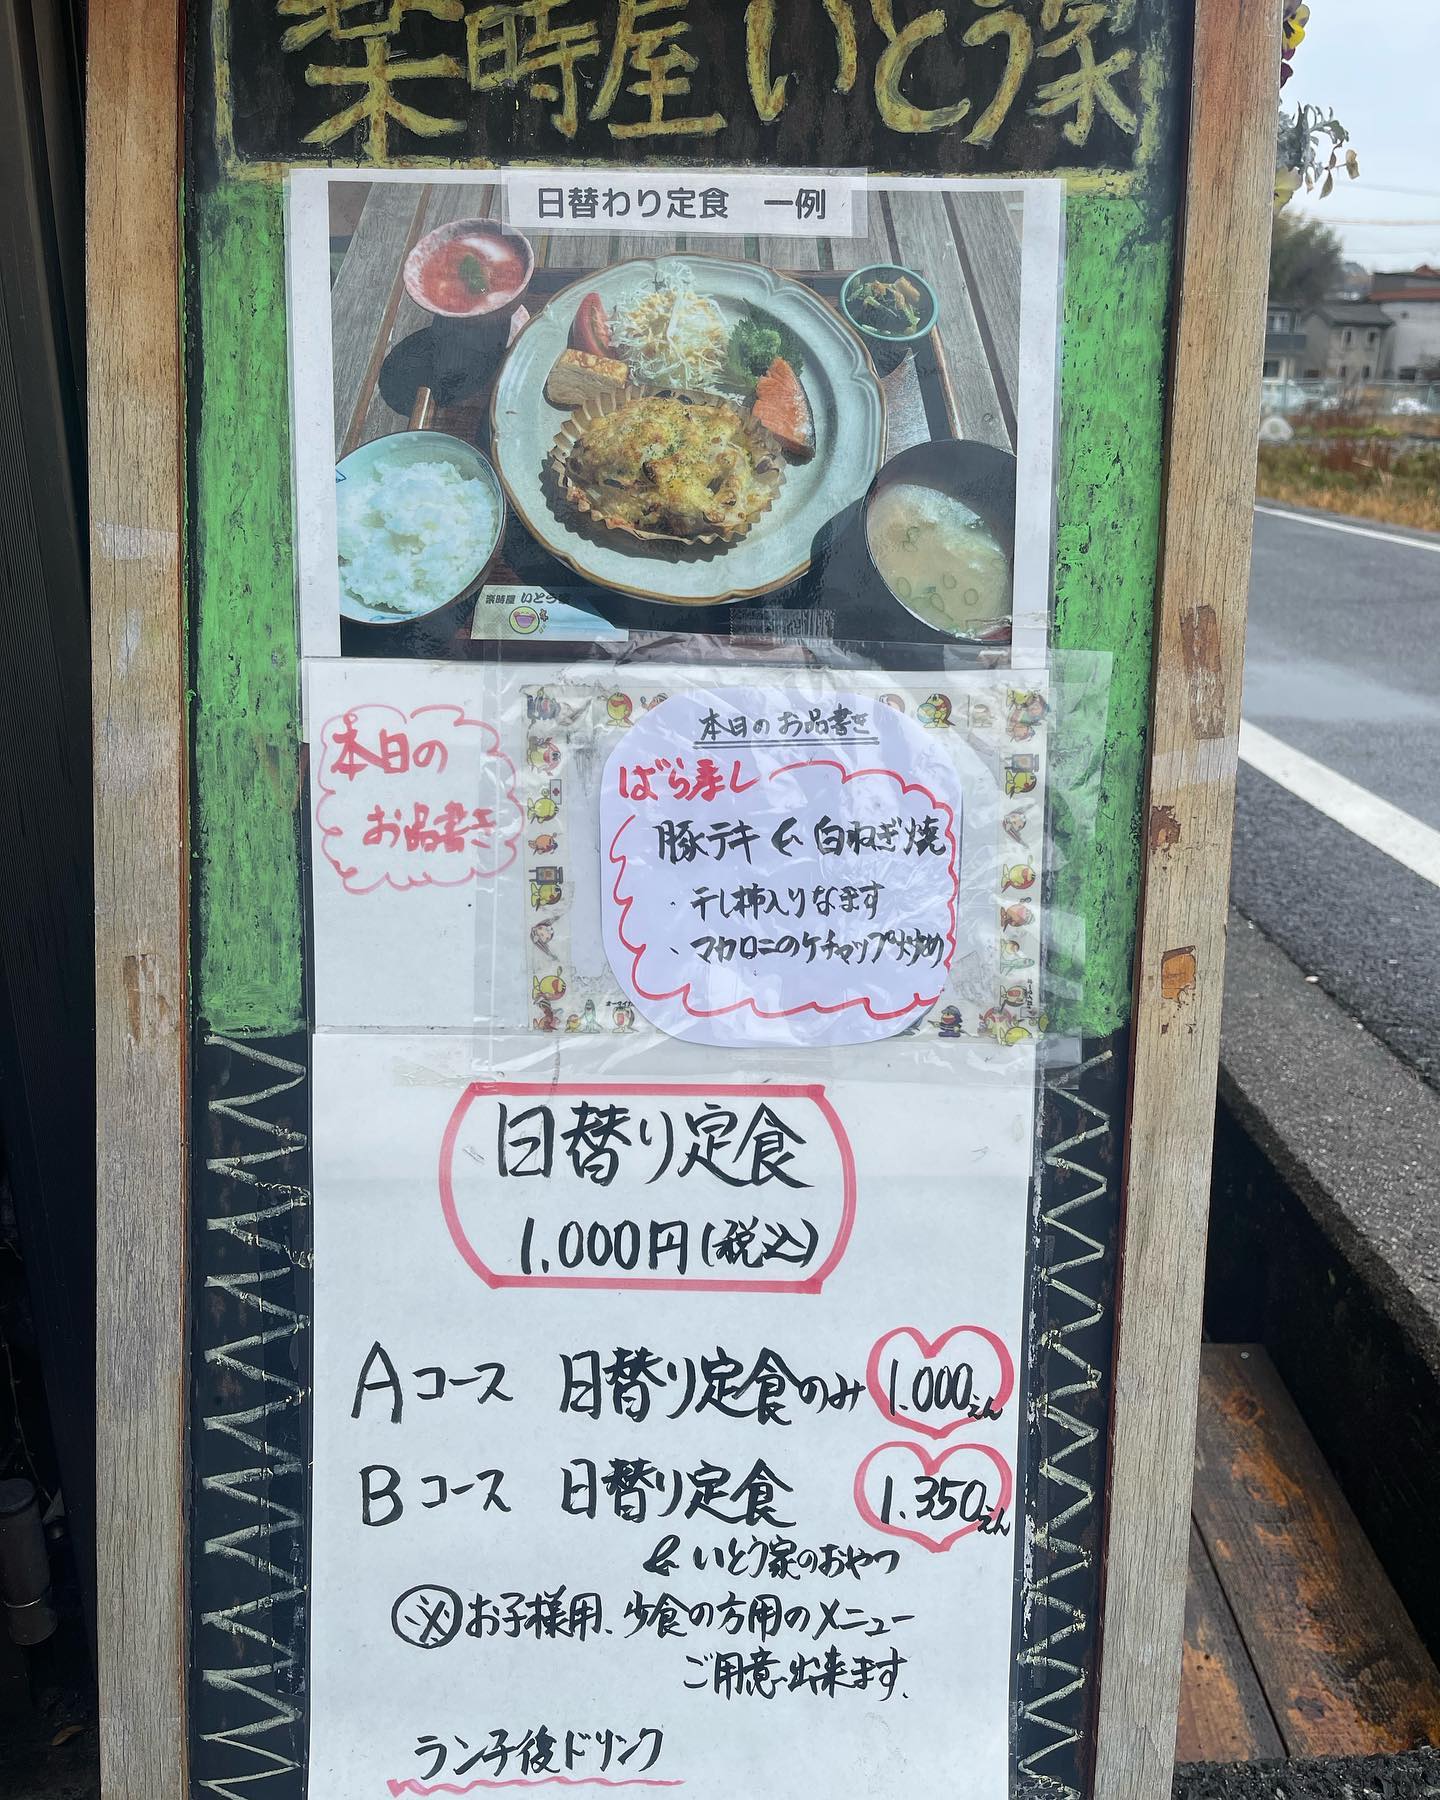 楽時屋いとう家
日替わり定食　一例
楽時屋 いとう家
本日の
お品書き
本日のお品書き
豚テキ & 白ねぎ焼
・干し柿入りなます
・マカロニのケチャップ炒め
日替り定食
1,000円(税込)
Aコース 日替り定食のみ 1.000えん
Bコース 日替り定食 1.350えん
& いとう家のおやつ
※お子様用、少食の方用のメニュー
ご用意出来ます、
ランチ後ドリンク